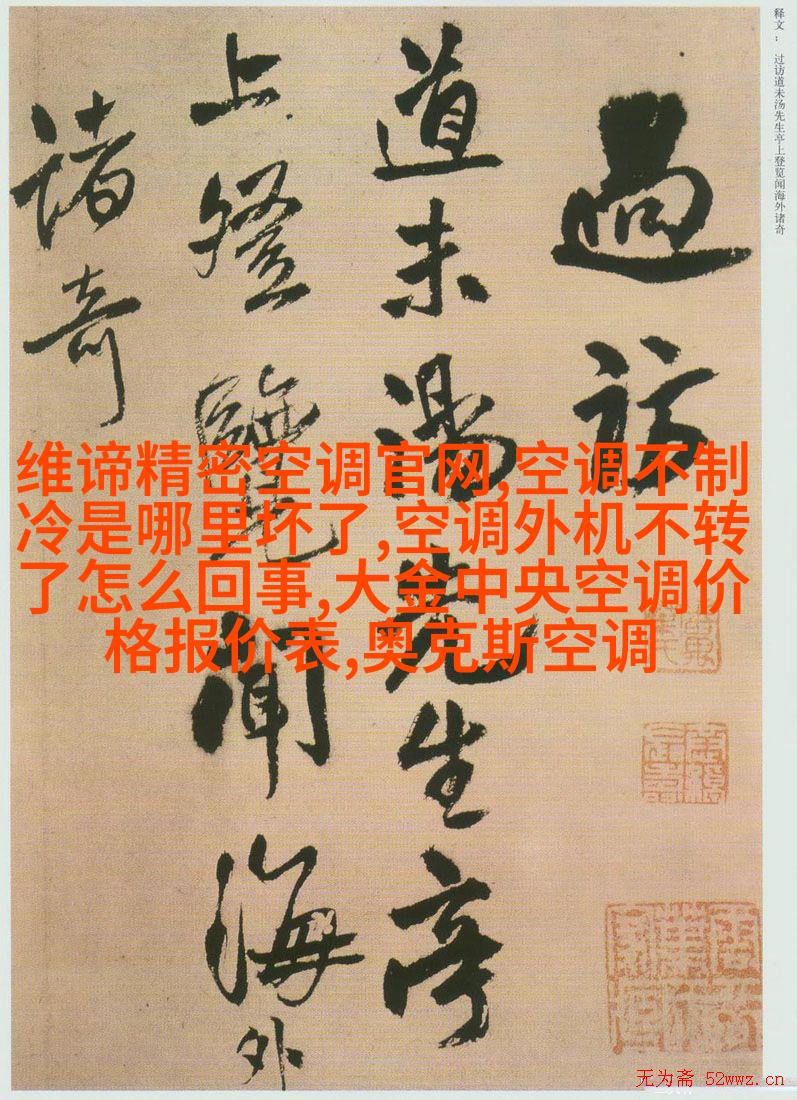 释文： 过访道未汤先生亭上登览闻海外诸奇
過訪
道未湯先生亭
上登覽聞海外
諸奇
维谛精密空调官网,空调不制
冷是哪里坏了,空调外机不转
了怎么回事,大金中央空调价
格报价表,奥克斯空调
无为斋 52wwz.cn